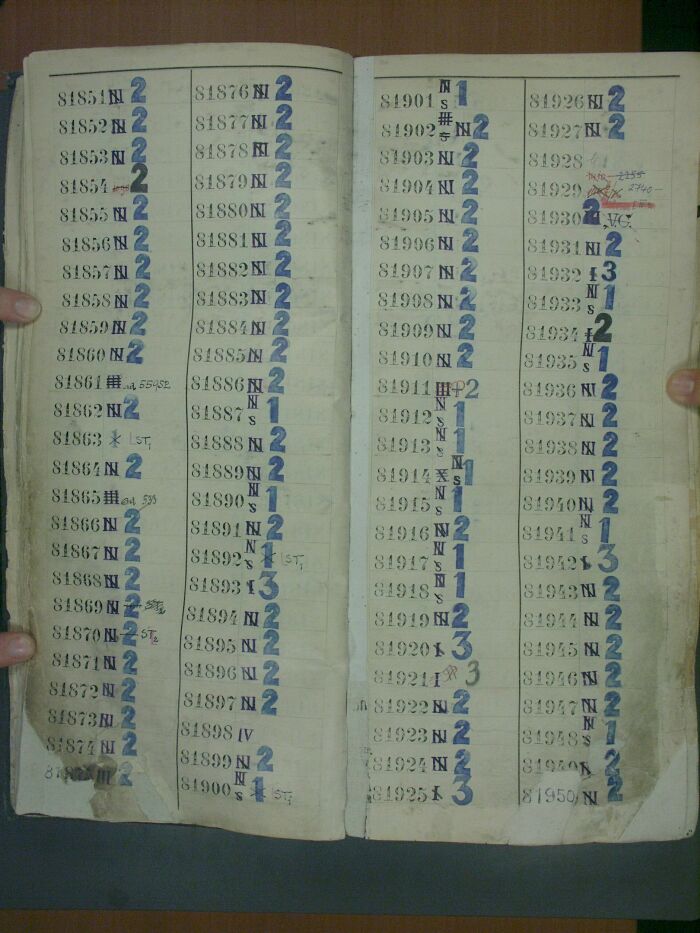 81851 N 2
81852 N 2
81853 N 2
81854 2
81855 N 2
81856 N 2
81857 N 2
81858 N 2
81859 N 2
81860 N 2
81861
81862 N 2
81863 ST1
81864 N 2
81865
81866 N 2
81867 N 2
81868 N 2
81869 N 2 ST2
81870 N 2 ST2
81871 N 2
81872 N 2
81873 N 2
81874 N 2
2
81876 N 2
81877 N 2
81878 N 2
81879 N 2
81880 N 2
81881 N 2
81882 N 2
81883 N 2
81884 N 2
81885 N 2
81886 N 2
81887 N S 1
81888 N 2
81889 N 2
81890 N S 1
81891 N 2
81892 N S 1 ST1
81893 I 3
81894 N 2
81895 N 2
81896 N 2
81897 N 2
81898 IV
81899 N 2
81900 N S 1 ST1
81901 N S 1
81902 N 2
81903 N 2
81904 N 2
81905 N 2
81906 N 2
81907 N 2
81908 N 2
81909 N 2
81910 N 2
81911 2
81912 N S 1
81913 N S 1
81914 N S 1
81915 N S 1
81916 N 2
81917 N S 1
81918 N S 1
81919 N 2
81920 I 3
81921 I 3
81922 N 2
81923 N 2
81924 N 2
81925 I 3
81926 N 2
81927 N 2
81928
81929 2740
81930 2 V.C.
81931 N 2
81932 I 3
81933 N S 1
81934 I 2
81935 N S 1
81936 N 2
81937 N 2
81938 N 2
81939 N 2
81940 N 2
81941 N S 1
81942 I 3
81943 N 2
81944 N 2
81945 N 2
81946 N 2
81947 N 2
81948 N S 1
81949 N 2
81950 N 2